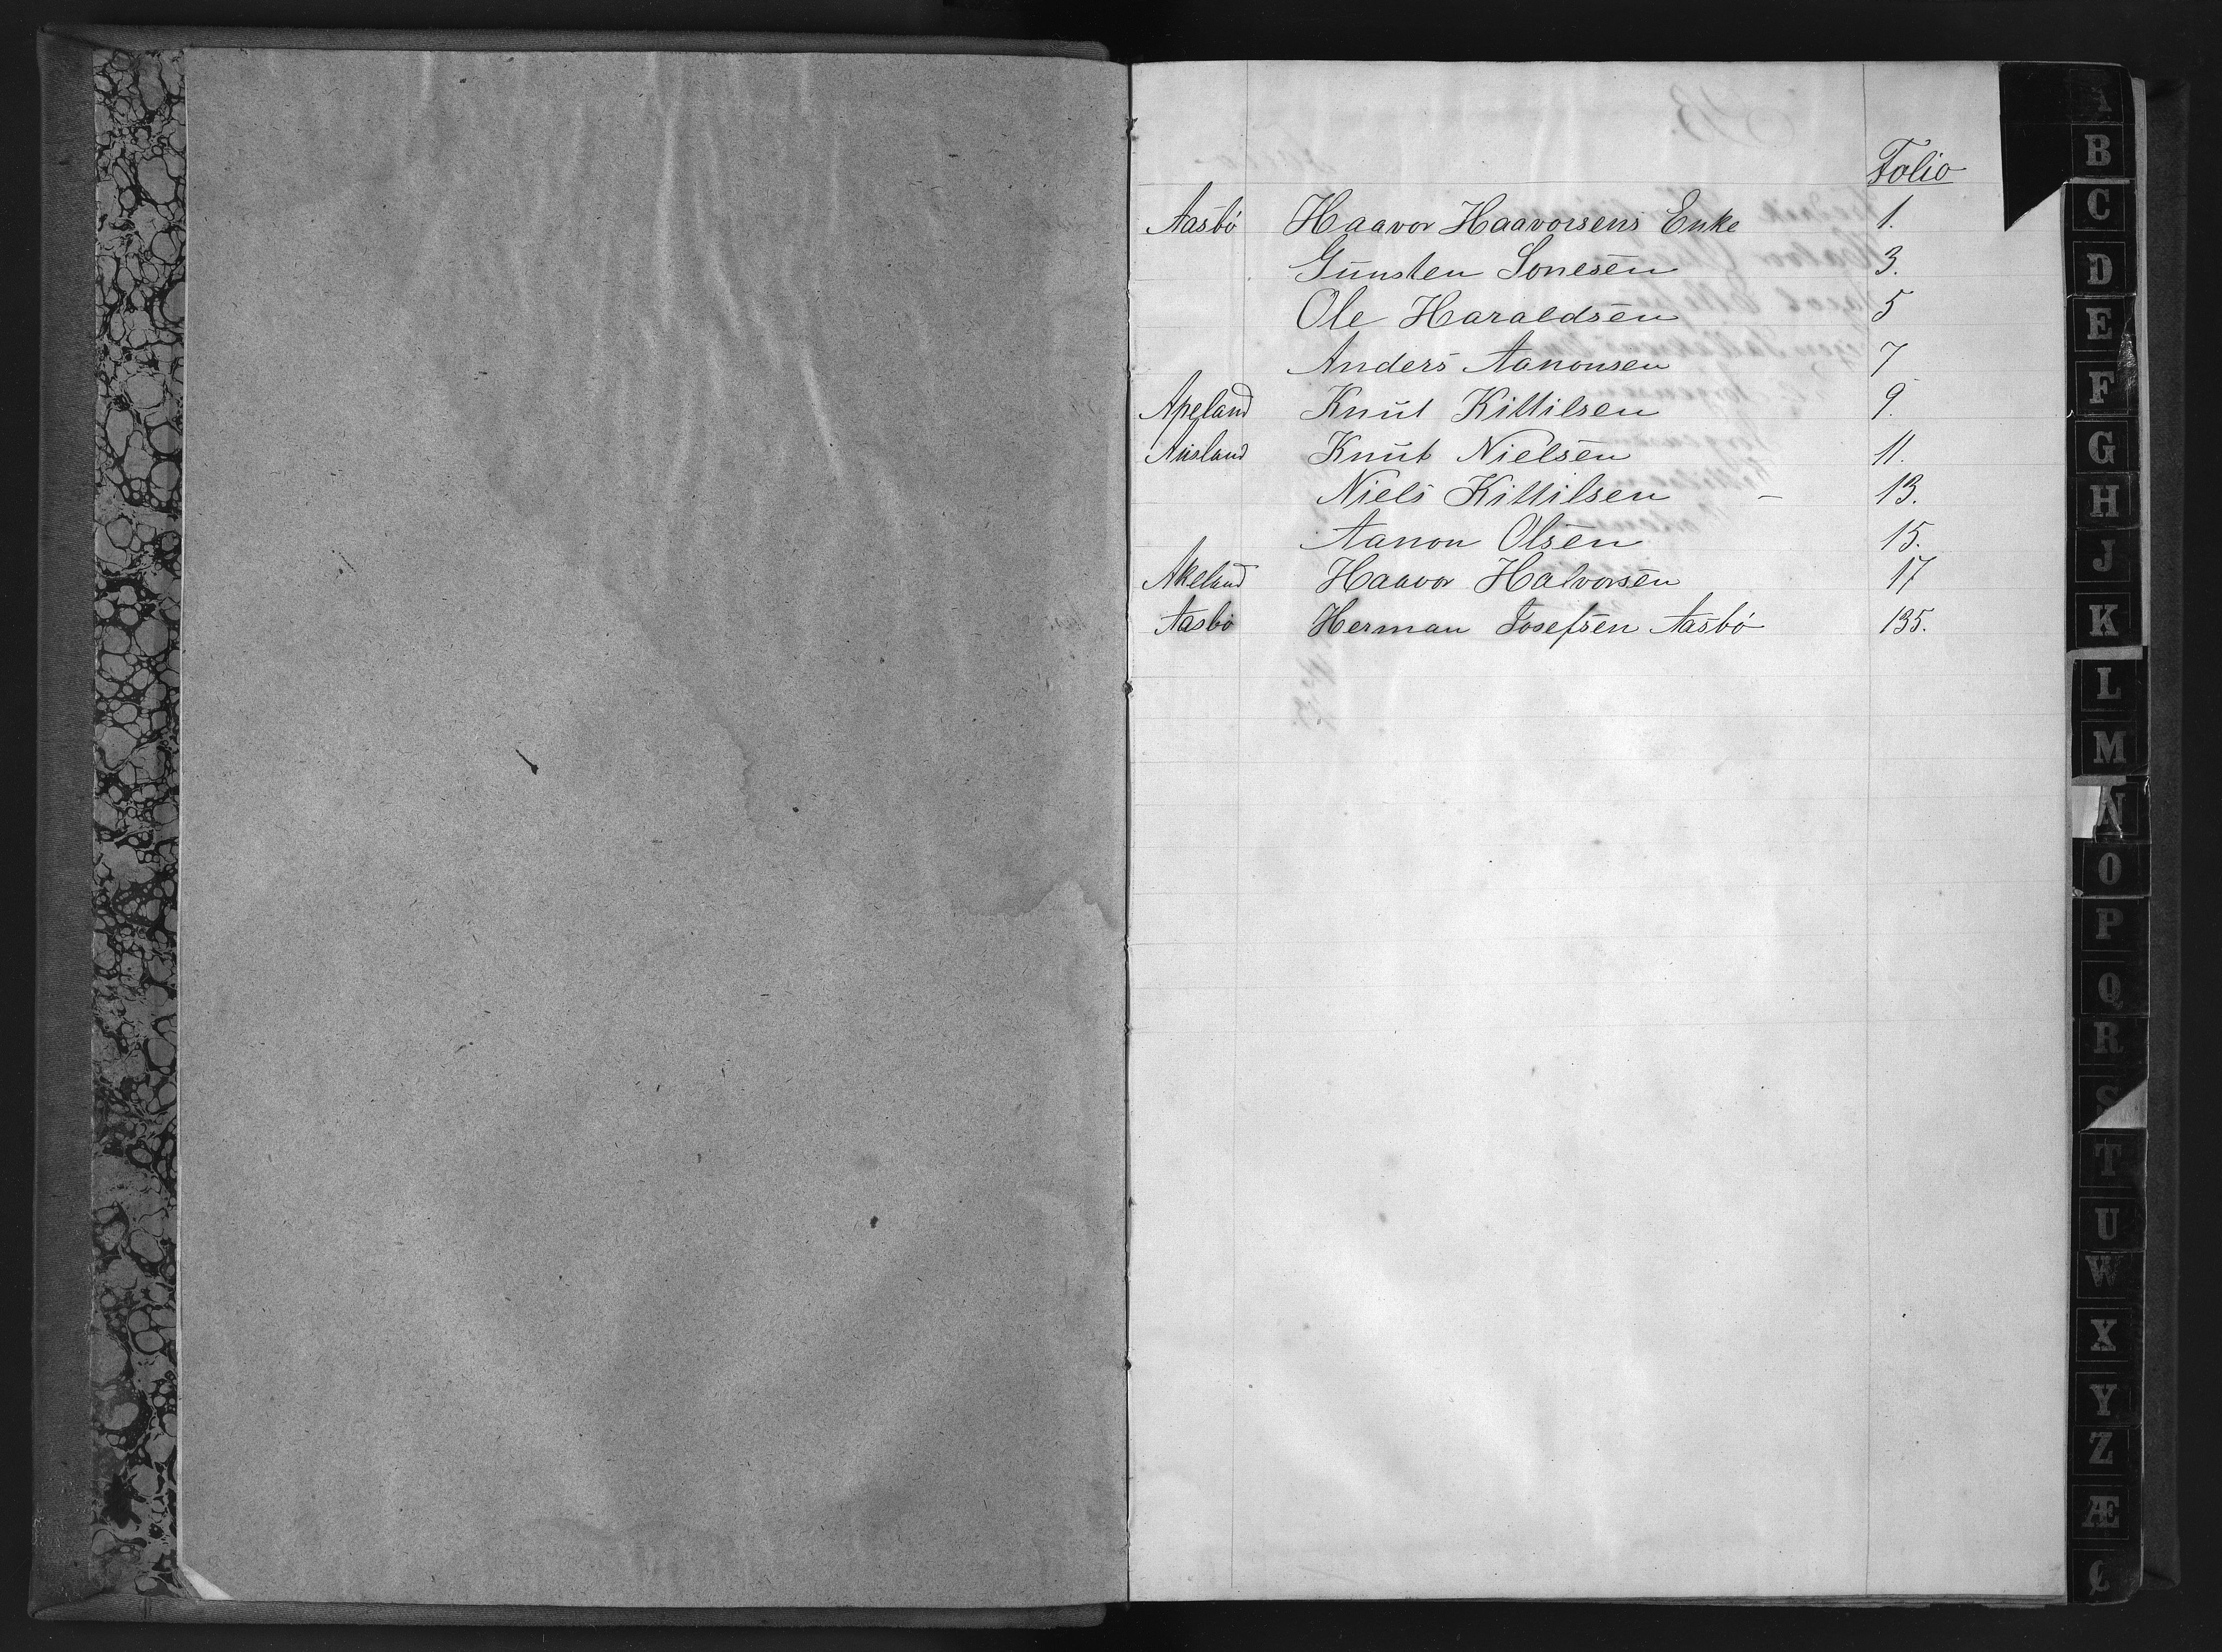 Folio
Aasbö Haavor Haavorsens Enke 1.
Gunsten Sonesen 3.
Ole Haraldsen 5
Anders Aanonsen 7
Apeland Knut Kittilsen 9.
Ausland Knut Nielsen 11.
Niels Kittilsen – 13.
Aanon Olsen 15.
Akeland Haavor Halvorsen 17
Aasbö Herman Josefsen Aasbö 135.
B
C
D
E
F
G
H
J
K
L
M
N
O
P
Q
R
S
T
U
W
X
Y
Z
Æ